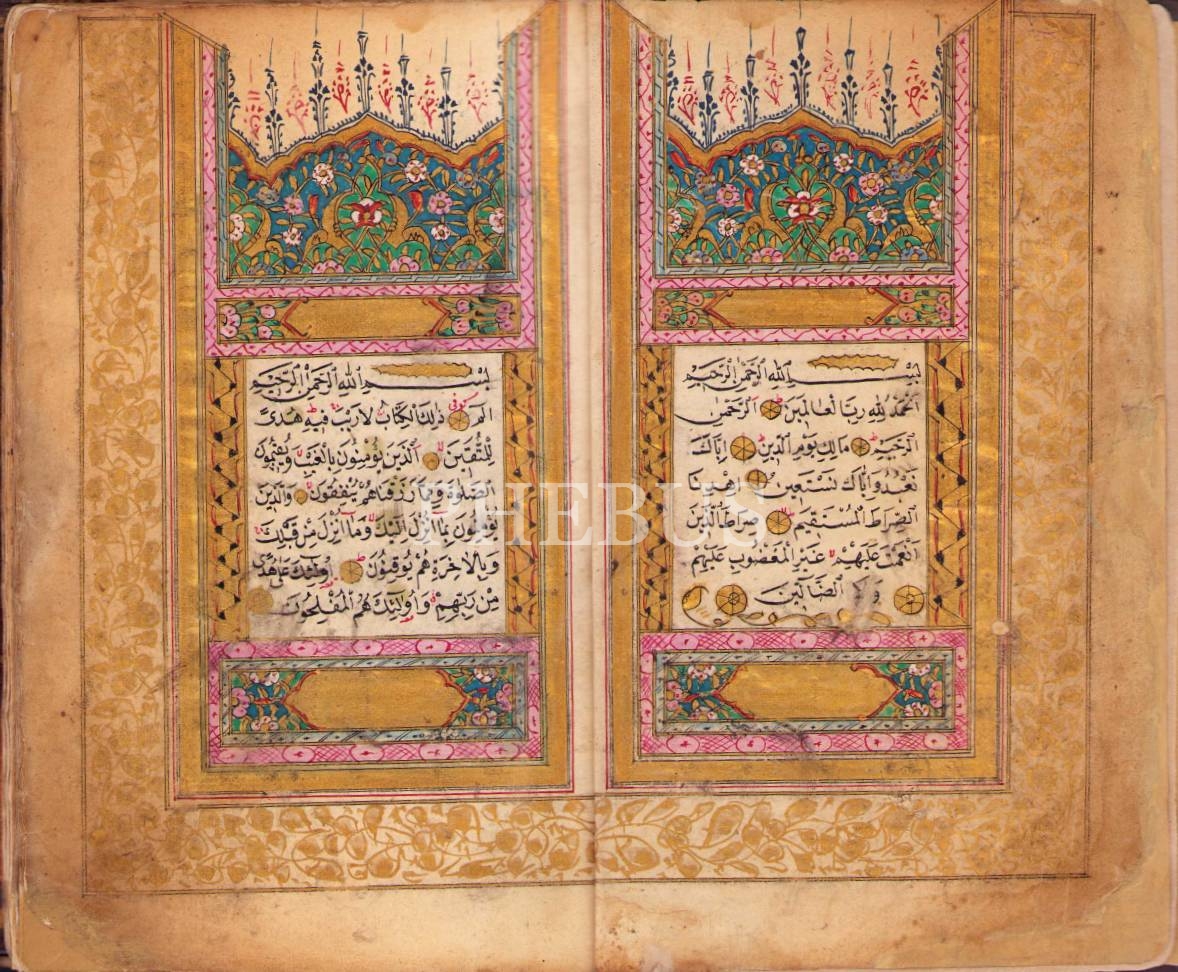 بِسْمِ اللهِ الرَّحْمٰنِ الرَّحِيمِ
اَلْحَمْدُ لِلّٰهِ رَبِّ الْعَالَمِينَ الرَّحْمٰنِ
الرَّحِيمِ مَالِكِ يَوْمِ الدِّينِ اِيَّاكَ
نَعْبُدُ وَاِيَّاكَ نَسْتَعِينُ اِهْدِنَا
الصِّرَاطَ الْمُسْتَقِيمَ صِرَاطَ الَّذِينَ
اَنْعَمْتَ عَلَيْهِمْ غَيْرِ الْمَغْضُوبِ عَلَيْهِمْ
وَلَا الضَّالِّينَ
بِسْمِ اللهِ الرَّحْمٰنِ الرَّحِيمِ
الم كوفى ذٰلِكَ الْكِتَابُ لَا رَيْبَ فِيهِ هُدًى
لِلْمُتَّقِينَ اَلَّذِينَ يُؤْمِنُونَ بِالْغَيْبِ وَيُقِيمُونَ
الصَّلٰوةَ وَمِمَّا رَزَقْنَاهُمْ يُنْفِقُونَ وَالَّذِينَ
يُؤْمِنُونَ بِمَا اُنْزِلَ اِلَيْكَ وَمَا اُنْزِلَ مِنْ قَبْلِكَ
وَبِالْاٰخِرَةِ هُمْ يُوقِنُونَ اُولٰئِكَ عَلٰى هُدًى
مِنْ رَبِّهِمْ وَاُولٰئِكَ هُمُ الْمُفْلِحُونَ
PHEBUS